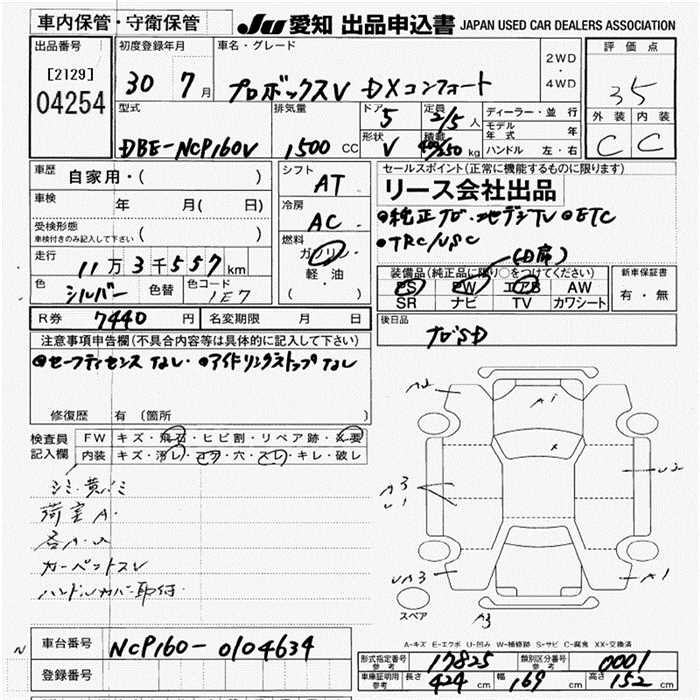 車内保管・守衛保管
JU 愛知 出品申込書 JAPAN USED CAR DEALERS ASSOCIATION
出品番号 初度登録年月 車名・グレード 2WD ・ 4WD 評価点
[2129] 04254 30 7月 プロボックスV DXコンフォート 3.5
型式 排気量 ドア 5 定員 2/5人 ディーラー・並行 外装 内装
DBE-NCP160V 1500cc 形状 V 積載 400/250kg モデル年式 年 C C
ハンドル 左・右
車歴 自家用・( ) シフト AT セールスポイント(正常に機能するものに限ります)
車検 年 月( 日) 冷房 AC リース会社出品
受検形態 車検付きのみ記入して下さい ( ) 燃料 ガソリン・軽・油 ( ) ●純正ナビ・地デジTV ●ETC
●TRC/VSC
走行 11万3千557km (D席)
色 シルバー 色替 色コード 1E7 装備品(純正品に限り○をつけてください) 新車保証書
PS PW エアB AW 有・無
SR ナビ TV カワシート
R券 7440円 名変期限 月 日 後日品
注意事項申告欄(不具合内容等は具体的に記入して下さい) ナビSD
●セーフティセンスなし・●アイドリングストップなし
修復歴 有(箇所
検査員記入欄 FW キズ・飛石・ヒビ割・リペア跡・X要
内装 キズ・汚レ・コゲ・穴・スレ・キレ・破レ
シミ・黄バミ
荷室A・
各A・U
カーペットスレ
ハンドルカバー取付
A2
A1
X
U2
A3
U1
UA3
A1
A3
スペア
A-キズ E-エクボ U-凹み W-補修跡 S-サビ C-腐食 XX-交換済
車台番号 NCP160-0104634 形式指定番号 参考 17825 類別区分番号 参考 0001
登録番号 車庫証明用 参考 長さ 424cm 幅 169cm 高さ 152cm